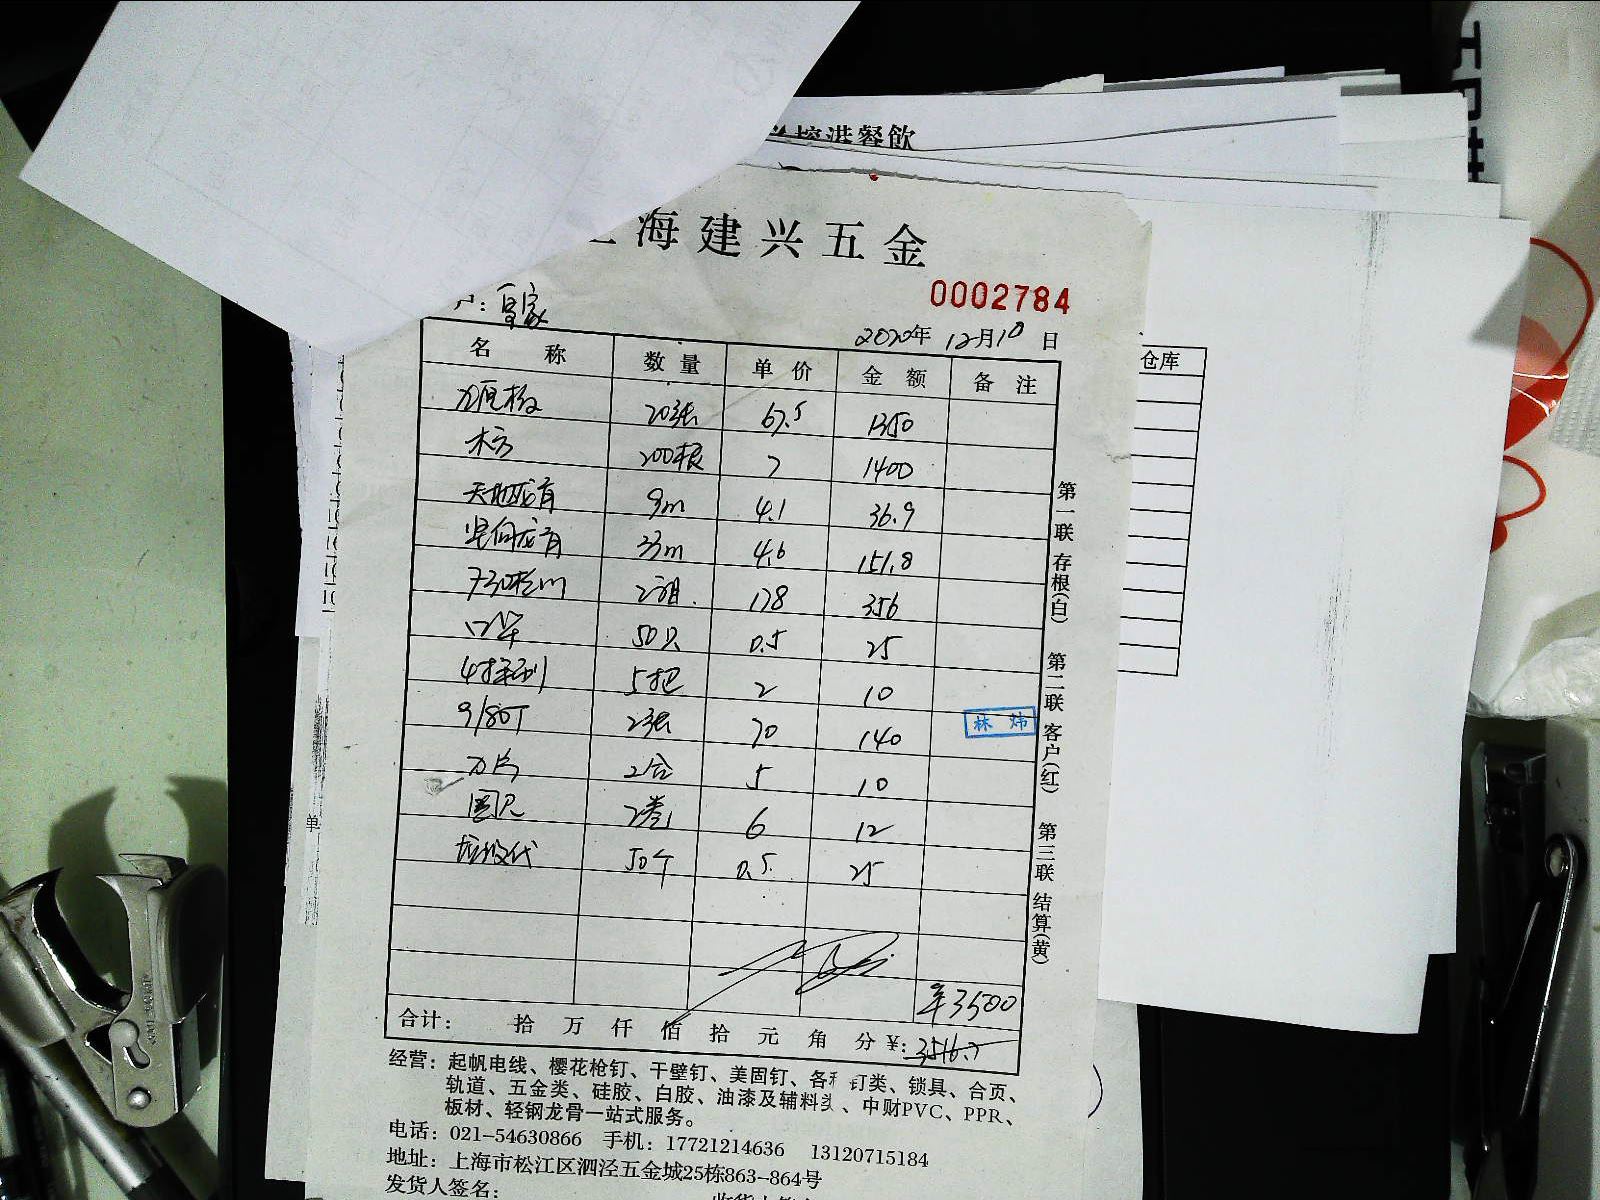 控洪餐飲
海建兴五金
0002784
2020年 12月10日
仓库
名 称 数 量 单 价 金 额 备 注
20张 67.5 1350
木方 200根 7 1400
天地龙骨 9m 4.1 36.9
竖向龙骨 33m 4.6 151.8
2组 178 356
50只 0.5 25
5把 2 10
9/80T 2张 70 140
刀片 2合 5 10
2卷 6 12
垃圾代 50个 0.5 25
¥3500
合计: 拾 万 仟 佰 拾 元 角 分 ¥: 3516.7
第一联 存根(白) 第二联 客户(红) 第三联 结算(黄)
林 炜
经营: 起帆电线、樱花枪钉、干壁钉、美固钉、各 钉类、锁具、合页、
轨道、五金类、硅胶、白胶、油漆及辅料头、中财PVC、PPR、
板材、轻钢龙骨一站式服务。
电话: 021-54630866 手机: 17721214636 13120715184
地址: 上海市松江区泗泾五金城25栋863-864号
发货人签名:
单